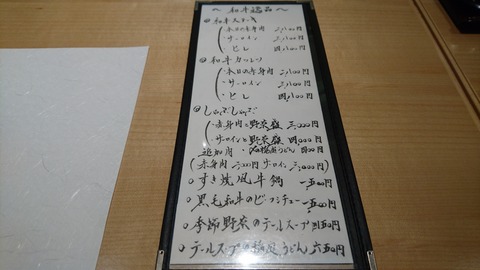 ～和牛逸品～
和牛ステーキ
・本日の赤身肉 二,八〇〇円
・サーロイン 三,八〇〇円
・ヒレ 四,八〇〇円
和牛カツレツ
・本日の赤身肉 二,八〇〇円
・サーロイン 三,八〇〇円
・ヒレ 四,八〇〇円
しゃぶしゃぶ
・赤身肉と野菜盛 三,〇〇〇円
・サーロインと野菜盛 四,〇〇〇円
追加肉・稲庭うどん 四〇〇円
(赤身肉 二,〇〇〇円 サーロイン 三,〇〇〇円)
すき焼風牛鍋 一,五〇〇円
黒毛和牛のビーフシチュー 一,五〇〇円
季節野菜のテールスープ 八五〇円
テールスープの稲庭うどん 六五〇円